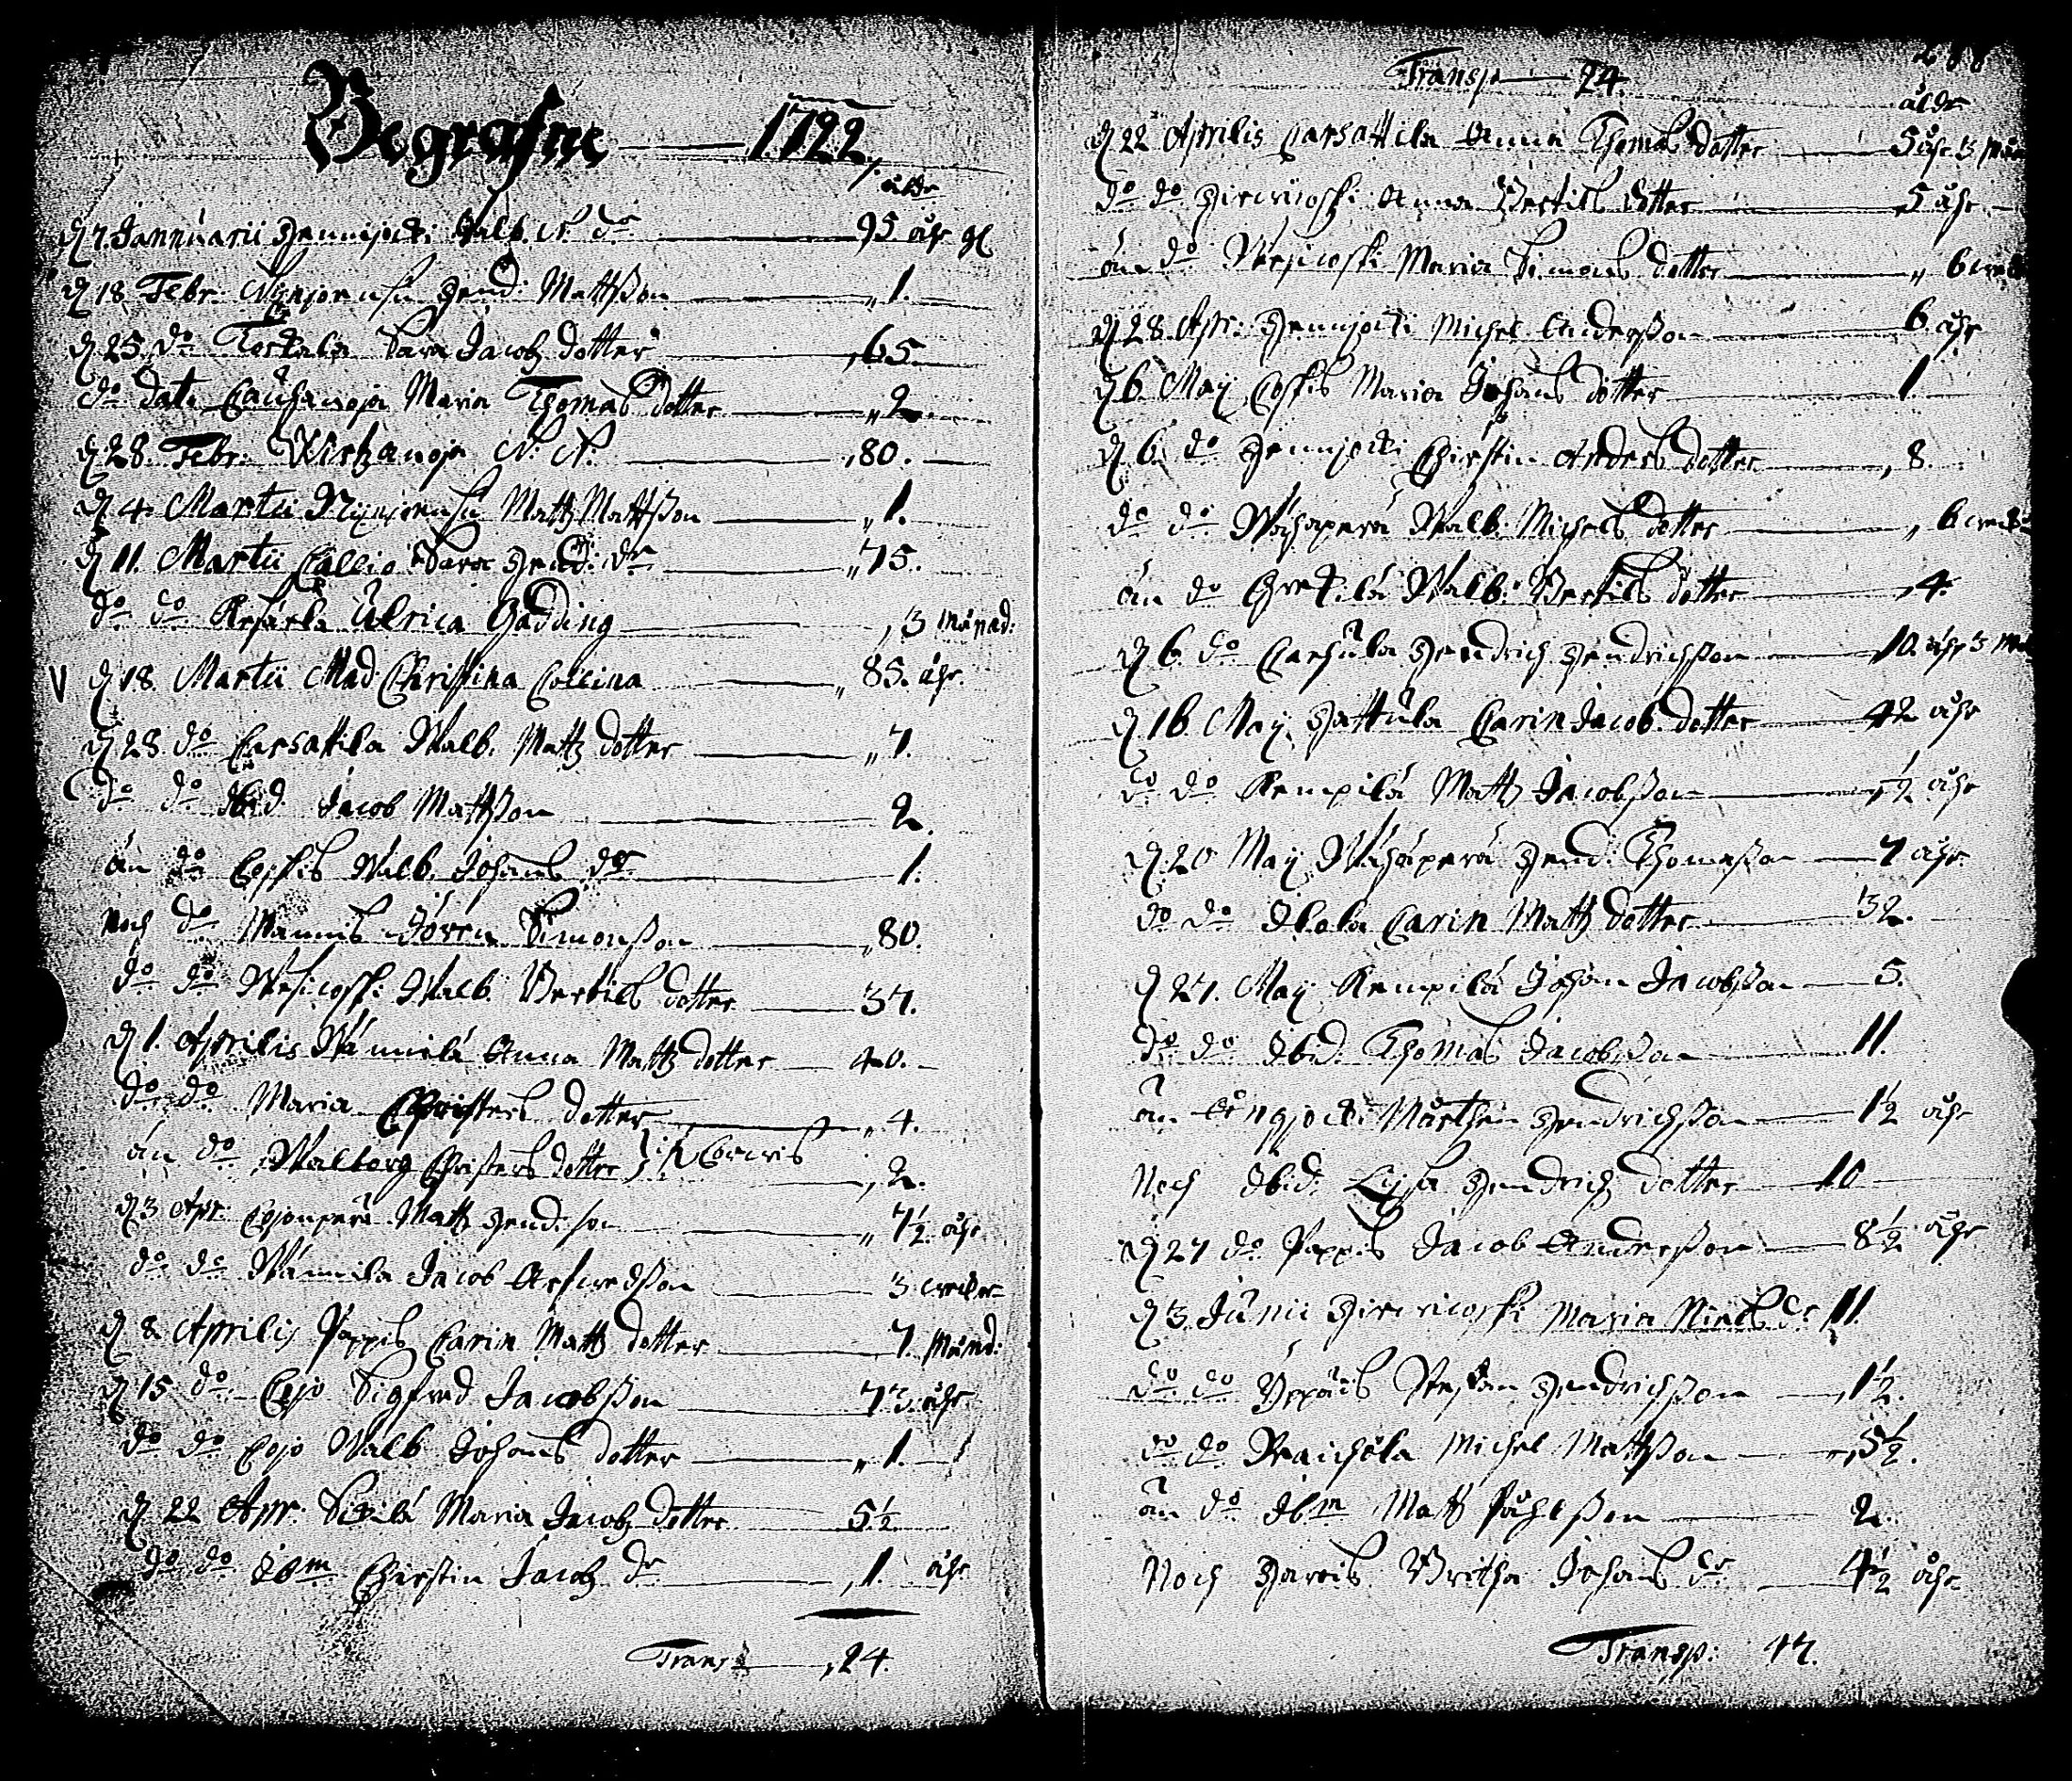 Begrafne 1722.
åldr
d 7 Jannuarii Hennijocki Valb. N. dr 95 åhr gl
d 18 Febr. Nynjoensu Hend: Mattßon 1.
d 25 do Torkala Sara Jacobz dotter 65
do dato Cauhanoja Maria Thomas dotter 2.
d 28. Febr. Wirtzanoja N. N. 80.
d 4. Martii Nynjoensu Mattz Mattßon 1.
d 11. Martii Callio Sara Hend: dr 75.
do do Ulrica Gadding 3 månad:
V d 18. Martii Mad Christina Collina 85. åhr.
d 28. do Carhattila Walb. Mattz dotter 7.
do do Ibid. Jacob Mattßon 2.
än do Coskis Walb. Johans dr 1.
Noch do Mannis Jören Simonßon 80.
do do Wesicoski Walb. Bertils dotter 37.
d 1. Aprilis Wännilä Anna Mattz dotter 40.
do do Maria Christers dotter 4.
än do Walborg Christers dotter 2.
d 3 Apr: Cojonperä Mattz Hend: son 7½ åhr
do do Wännilä Jacob 3 weckor
d 8 Aprilis Pappis Carin Mattz dotter 7 Månd:
d 15 do Cojo Sigfred Jacobßon 73. åhr
do do Cojo Walb Johans dotter 1.
d 22 Apr: Sipilä Maria Jacobz dotter 5½
do do ibm Chirstin Jacobz dr 1. åhr
Transp 24.
Transp 24.
åldr
d 22 Aprilis Carhattila Anna Thomas dotter 5 åhr 3 Mån
do do Hirwikoski Anna Bertils dotter 5 åhr
än do Wesicoski Maria Simons dotter 6
d 28. Apr: Hennijocki Michel Anderßon 6. åhr
d 6. May Coskis Maria Johans dotter 1.
d 6. do Hennijocki Chirstin Anders dotter 8.
do do Wähäperä Walb. Michels dotter 6
än do Walb: Bertils dotter 4.
d 6. do Carhula Hendrich Hendrichßon 10. åhr 3
d 16 May Hattula Carin Jacob. dotter 42 åhr
do do Rempilä Mattz Jacobßon ½ åhr
d 20 May Wähäperä Hend: Thomaßon 7 åhr.
do do Ilola Carin Mattz dotter 32.
d 27. May Rempilä Johan Jacobßon 5.
do do Ibid. Thomas Jacobßon 11.
än Mårthen Hendrichßon 1½ åhr
Noch Ibid: Lijsa Hendrichz dotter 10
d 27 do Pappis Jacob Anderßon 8½ åhr
d 3. Junii Hirwicoski Maria Niels dr 11.
do do Stephan Hendrichßon 1½.
do do Michel Mattßon 5½.
än do Ibm Mattz Påhlßon 2.
Noch Haris Britha Johans dr 4½ åhr
Transp: 47.